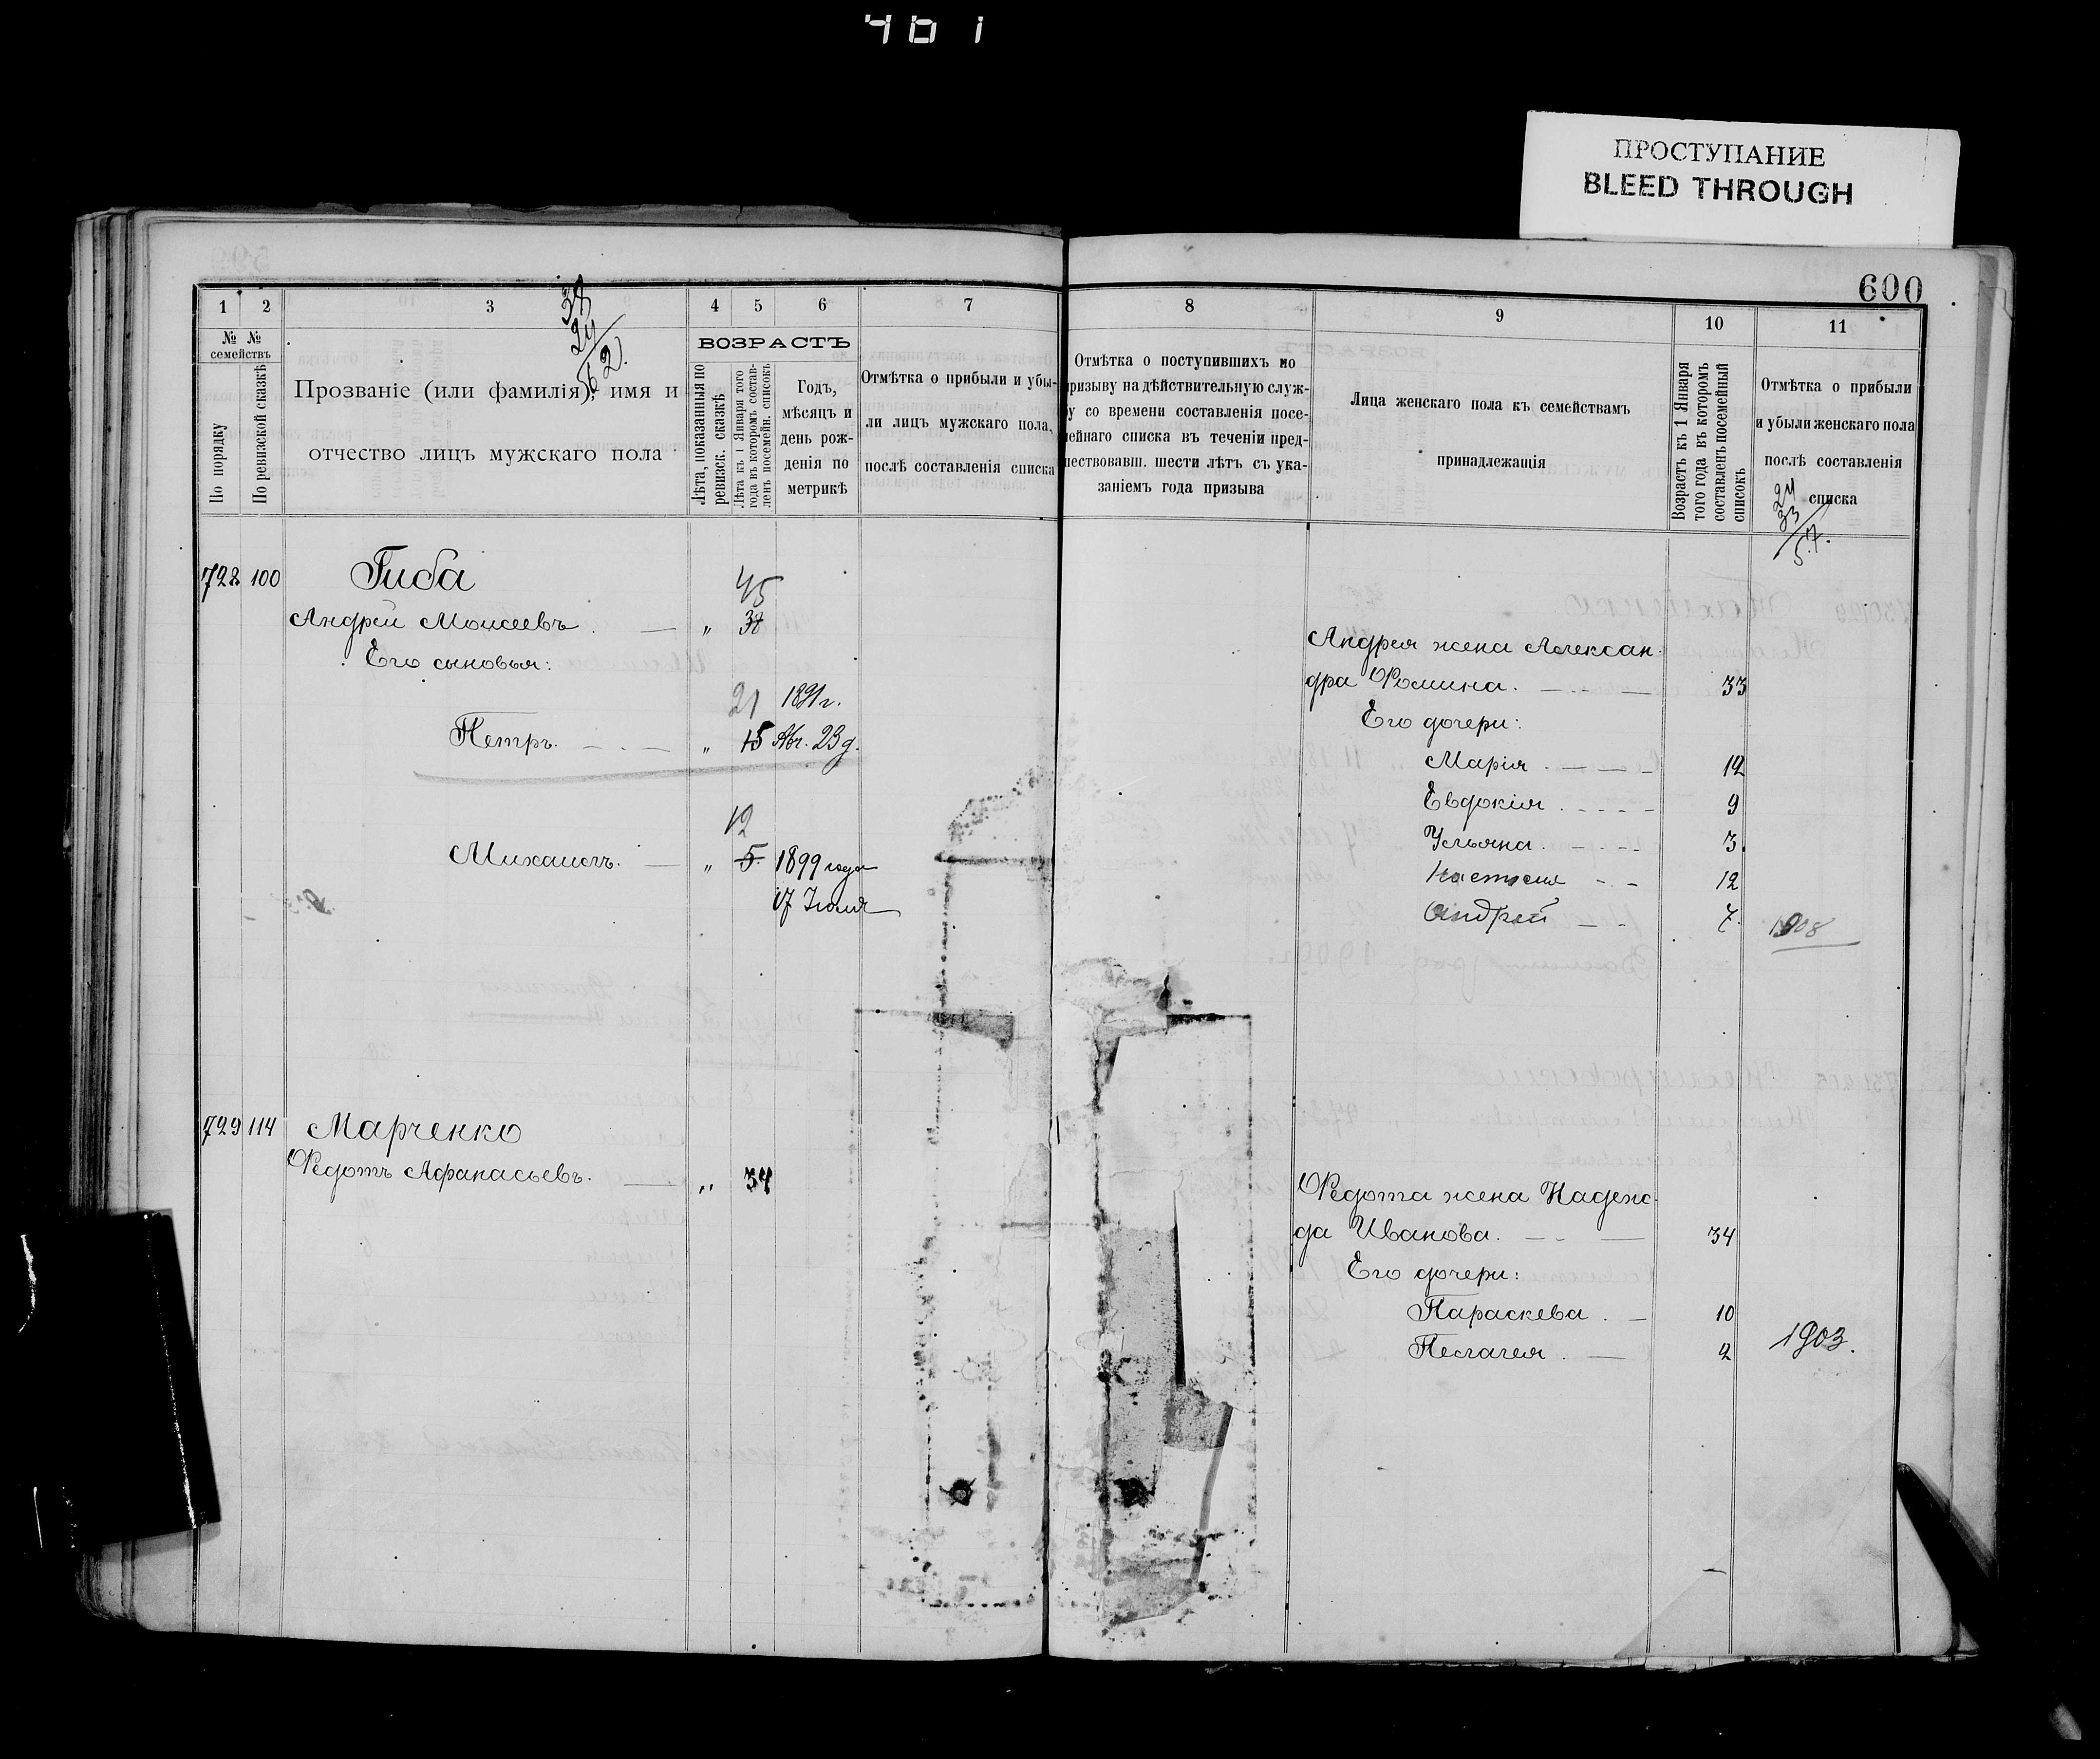 461
ПРОСТУПАНИЕ
BLEED THROUGH
600
1 2 3 4 5 6 7
№ № семействъ
По порядку
По ревизской сказкѣ
Прозваніе (или фамилія), имя и
отчество лицъ мужскаго пола
38
24
62).
ВОЗРАСТЪ
Лѣта, показанныя по
ревизск. сказкѣ
Лѣта къ 1 Января того
года въ которомъ состав-
ленъ посемейн. списокъ
Годъ,
мѣсяцъ и
день рож-
денія по
метрикѣ
Отмѣтка о прибыли и убы-
ли лицъ мужскаго пола,
послѣ составленія списка
728 100 Гиба
45
Андрей Моисеевъ. — " 38
Его сыновья:
21 1891г.
Петръ. — " 15 Авг. 23 д.
12
Михаилъ. — " 5. 1899 года
17 Іюля
729 114 Марченко
Ѳедотъ Афанасьевъ. — " 34
8 9 10 11
Отмѣтка о поступившихъ по
призыву на дѣйствительную служ-
бу со времени составленія посе-
мейнаго списка въ теченіи пред-
шествовавш. шести лѣтъ съ ука-
заніемъ года призыва
Лица женскаго пола къ семействамъ
принадлежащія
Возрастъ къ 1 Января
того года въ которомъ
составленъ посемейный
списокъ
Отмѣтка о прибыли
и убыли женскаго пола
послѣ составленія
списка
24
33
57.
Андрея жена Алексан-
дра Ѳомина. — 33
Его дочери:
Марія. — 12
Евдокія. — 9
Ульяна. — 3.
Настасия — 12
Андрей — 7. 1908
Ѳедота жена Надеж-
да Иванова. — 34
Его дочери:
Параскева. — 10
Пелагея. — 2 1903.